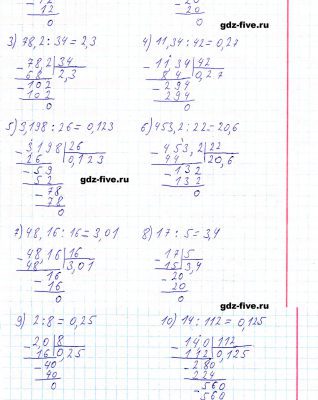 12
12
0
20
20
0
gdz-five.ru
3) 78,2 : 34 = 2,3
4) 11,34 : 42 = 0,27
- 78,2 | 34
68 | 2,3
- 102
102
0
- 11,34 | 42
84 | 0,27
- 294
294
0
gdz-five.ru
5) 3,198 : 26 = 0,123
6) 453,2 : 22 = 20,6
- 3,198 | 26
26 | 0,123
- 59
52
- 78
78
0
- 453,2 | 22
44 | 20,6
- 132
132
0
gdz-five.ru
7) 48,16 : 16 = 3,01
8) 17 : 5 = 3,4
- 48,16 | 16
48 | 3,01
- 16
16
0
- 17 | 5
15 | 3,4
- 20
20
0
gdz-five.ru
9) 2 : 8 = 0,25
10) 14 : 112 = 0,125
- 2,0 | 8
16 | 0,25
- 40
40
0
- 140 | 112
112 | 0,125
- 280
224
- 560
560
gdz-five.ru